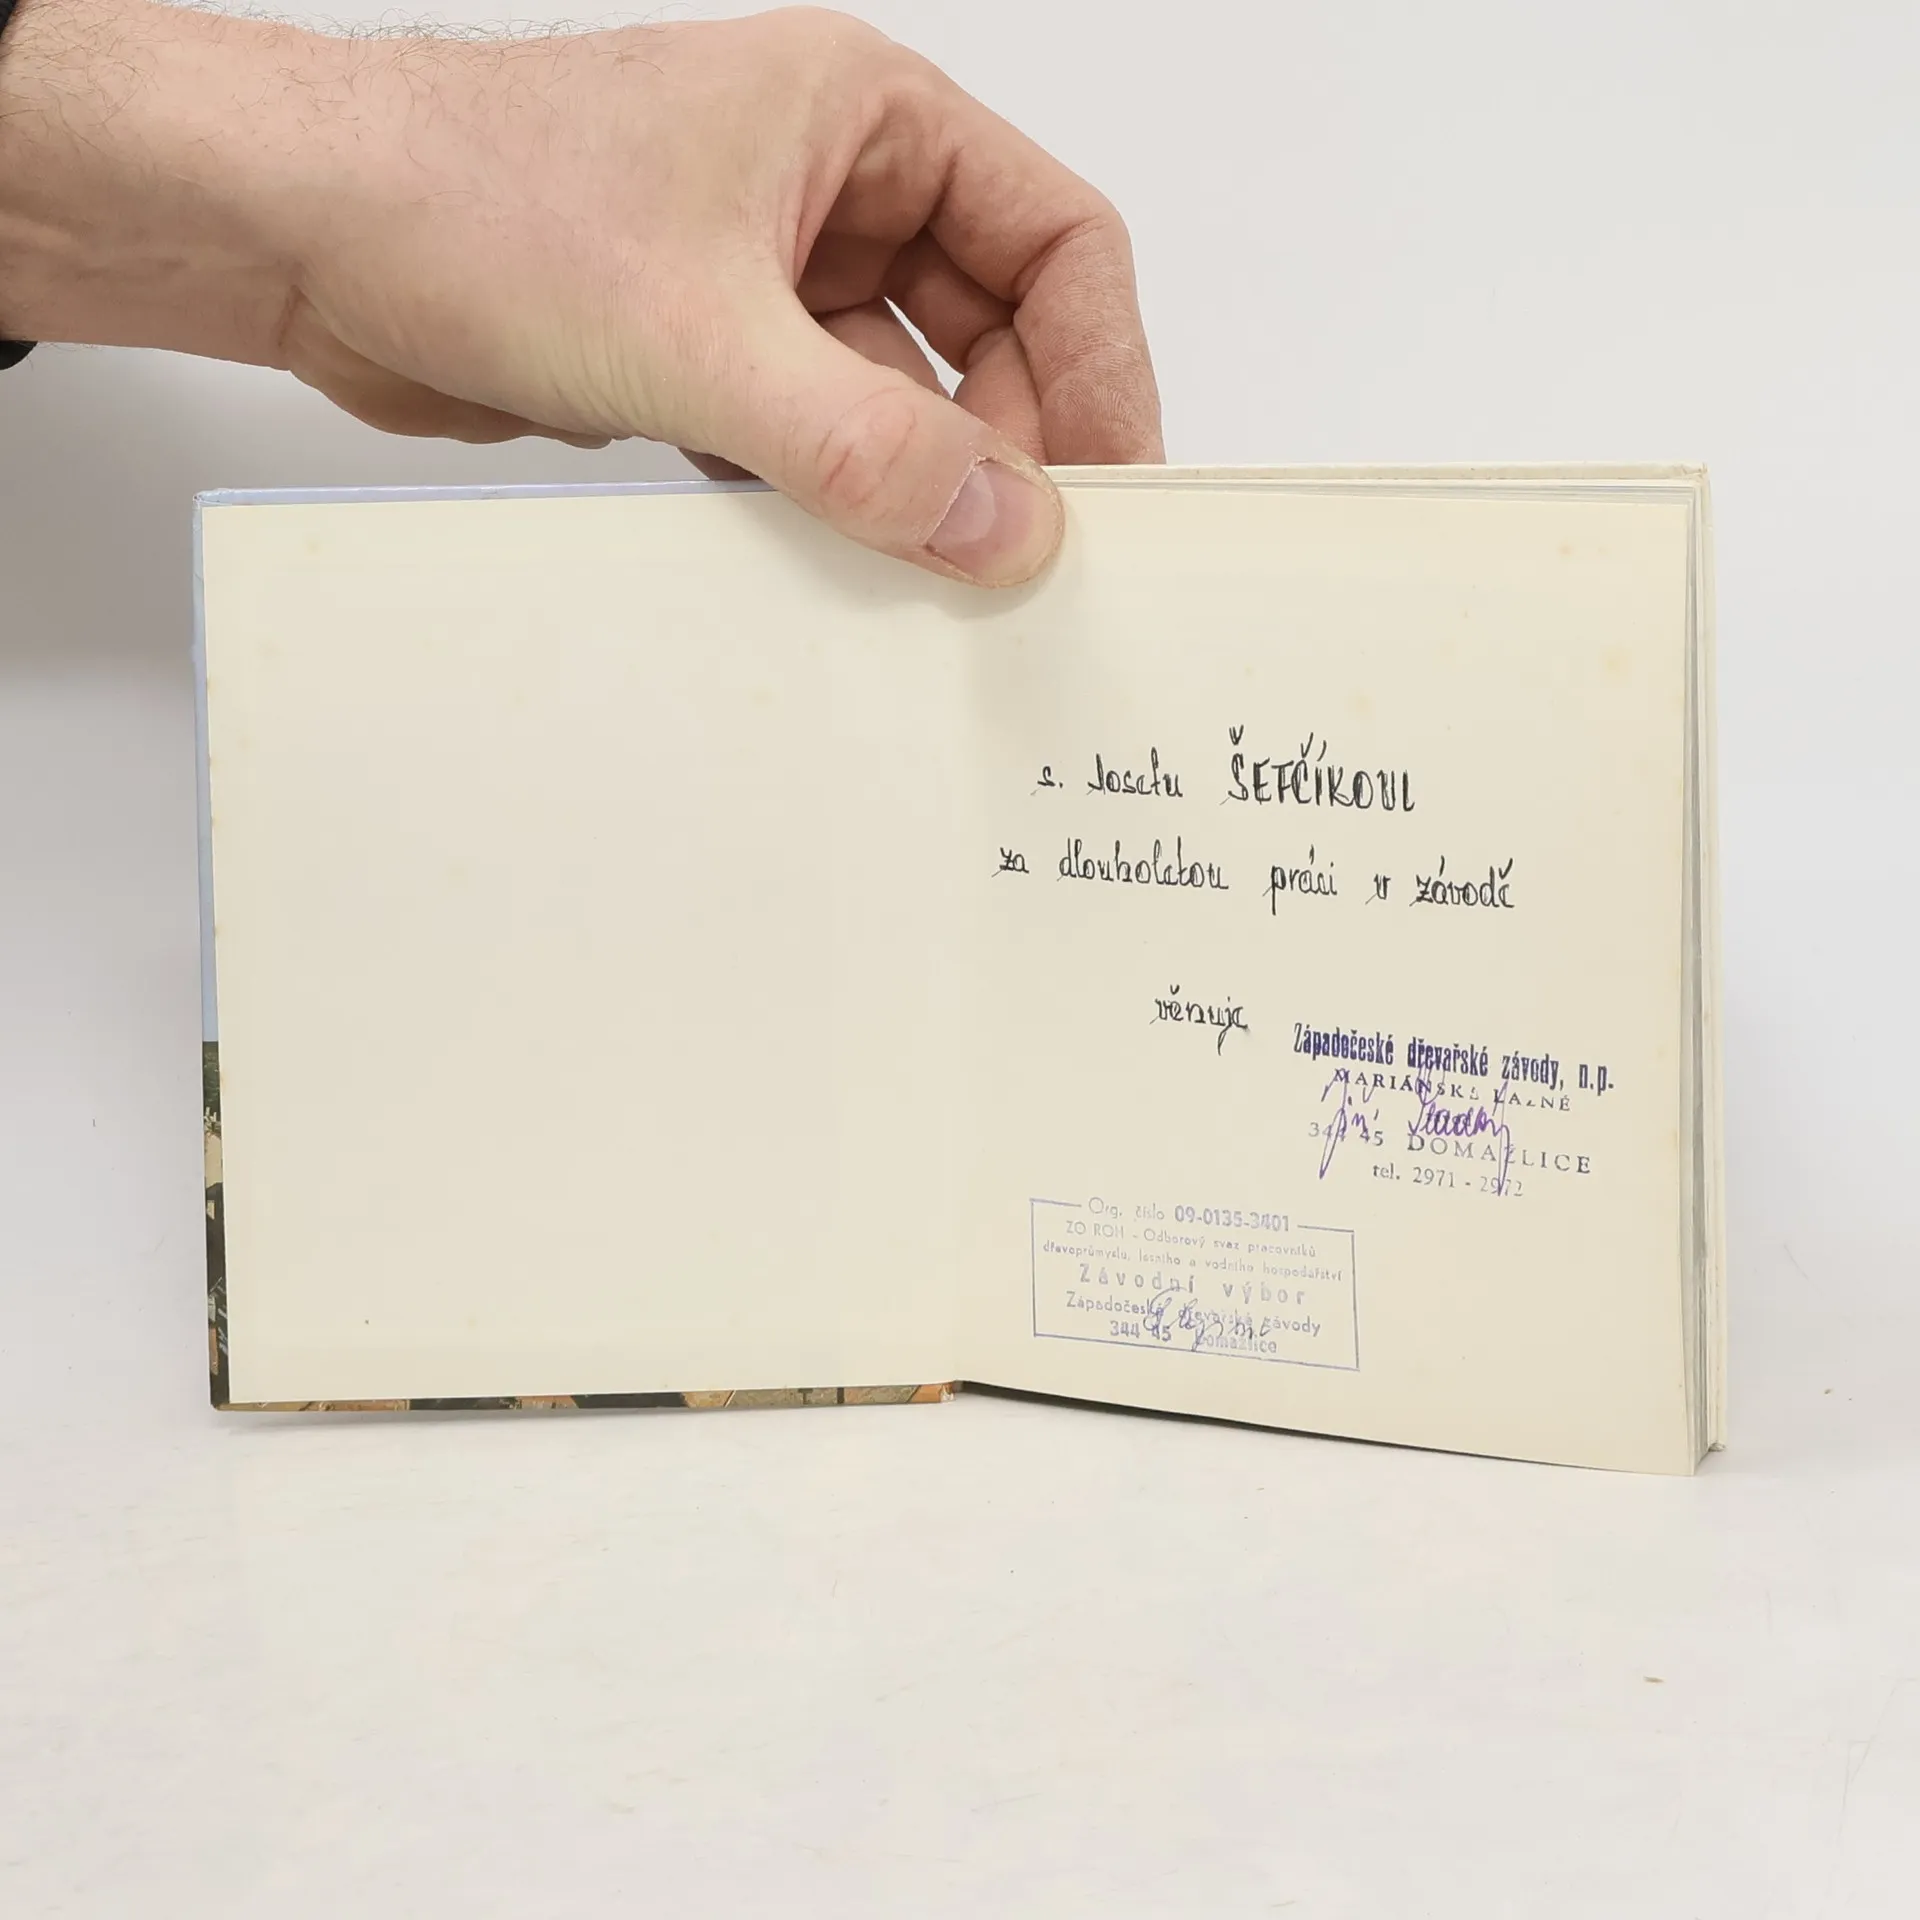 s. Josefu ŠETČÍKOVI
za dlouholetou práci v závodě
věnuje
Západočeské dřevařské závody, n.p.
MARIÁNSKÉ LÁZNĚ
344 45 DOMAŽLICE
tel. 2971 - 2972
Org. číslo 09-0135-3401
ZO ROH - Odborový svaz pracovníků
dřevoprůmyslu, lesního a vodního hospodářství
Závodní výbor
Západočeské dřevařské závody
344 45 Domažlice